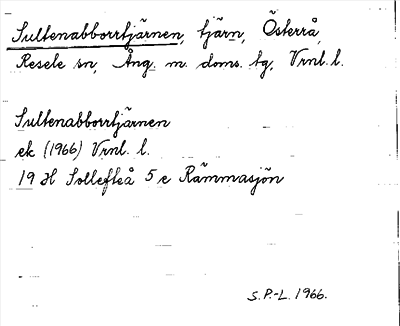 Sultenabborrtjärnen, tjärn, Österrå,
Resele sn, Ång. m. doms. tg, Vrnl. l.
Sultenabborrtjärnen
ek (1966) Vrnl. l.
19 H Sollefteå 5 e Rämmasjön
S.P.-L. 1966.